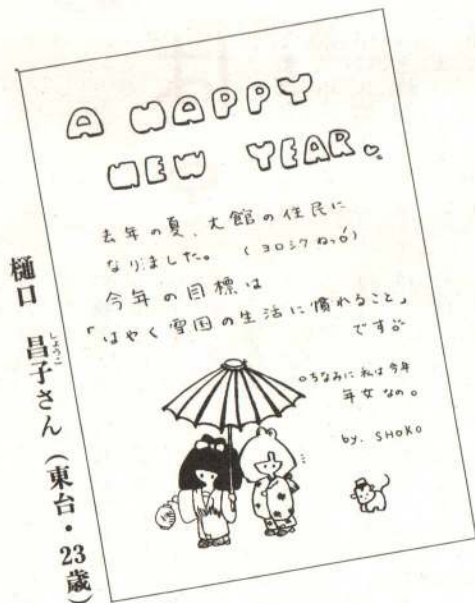 A HAPPY
NEW YEAR
去年の夏、大館の住民に
なりました。(ヨロシクねっ)
今年の目標は
「はやく雪国の生活に慣れること」
です
ちなみに私は今年
年女なの。
by. SHOKO
樋口 昌子さん(東台・23歳)
しょうこ